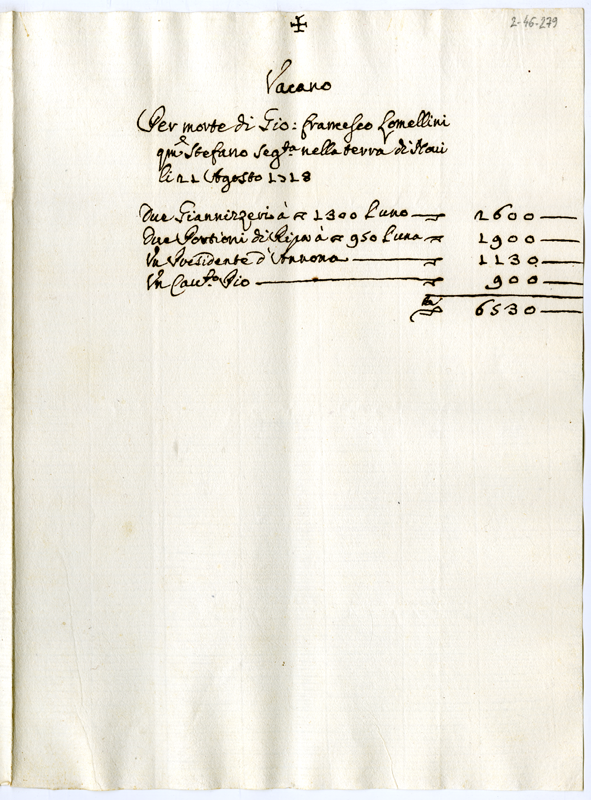 2-46-279
Vacano
Per morte di Gio: Francesco Lomellini
qm. Stefano Segta nella terra di Noui
li 21 Agosto 1718
Due Giannizzeri à 1300 l'uno 2600
Due Portioni di Ripa à 950 l'una 1900
Un Presidente d'Annona 1130
Un Cauo. Pio 900
6530